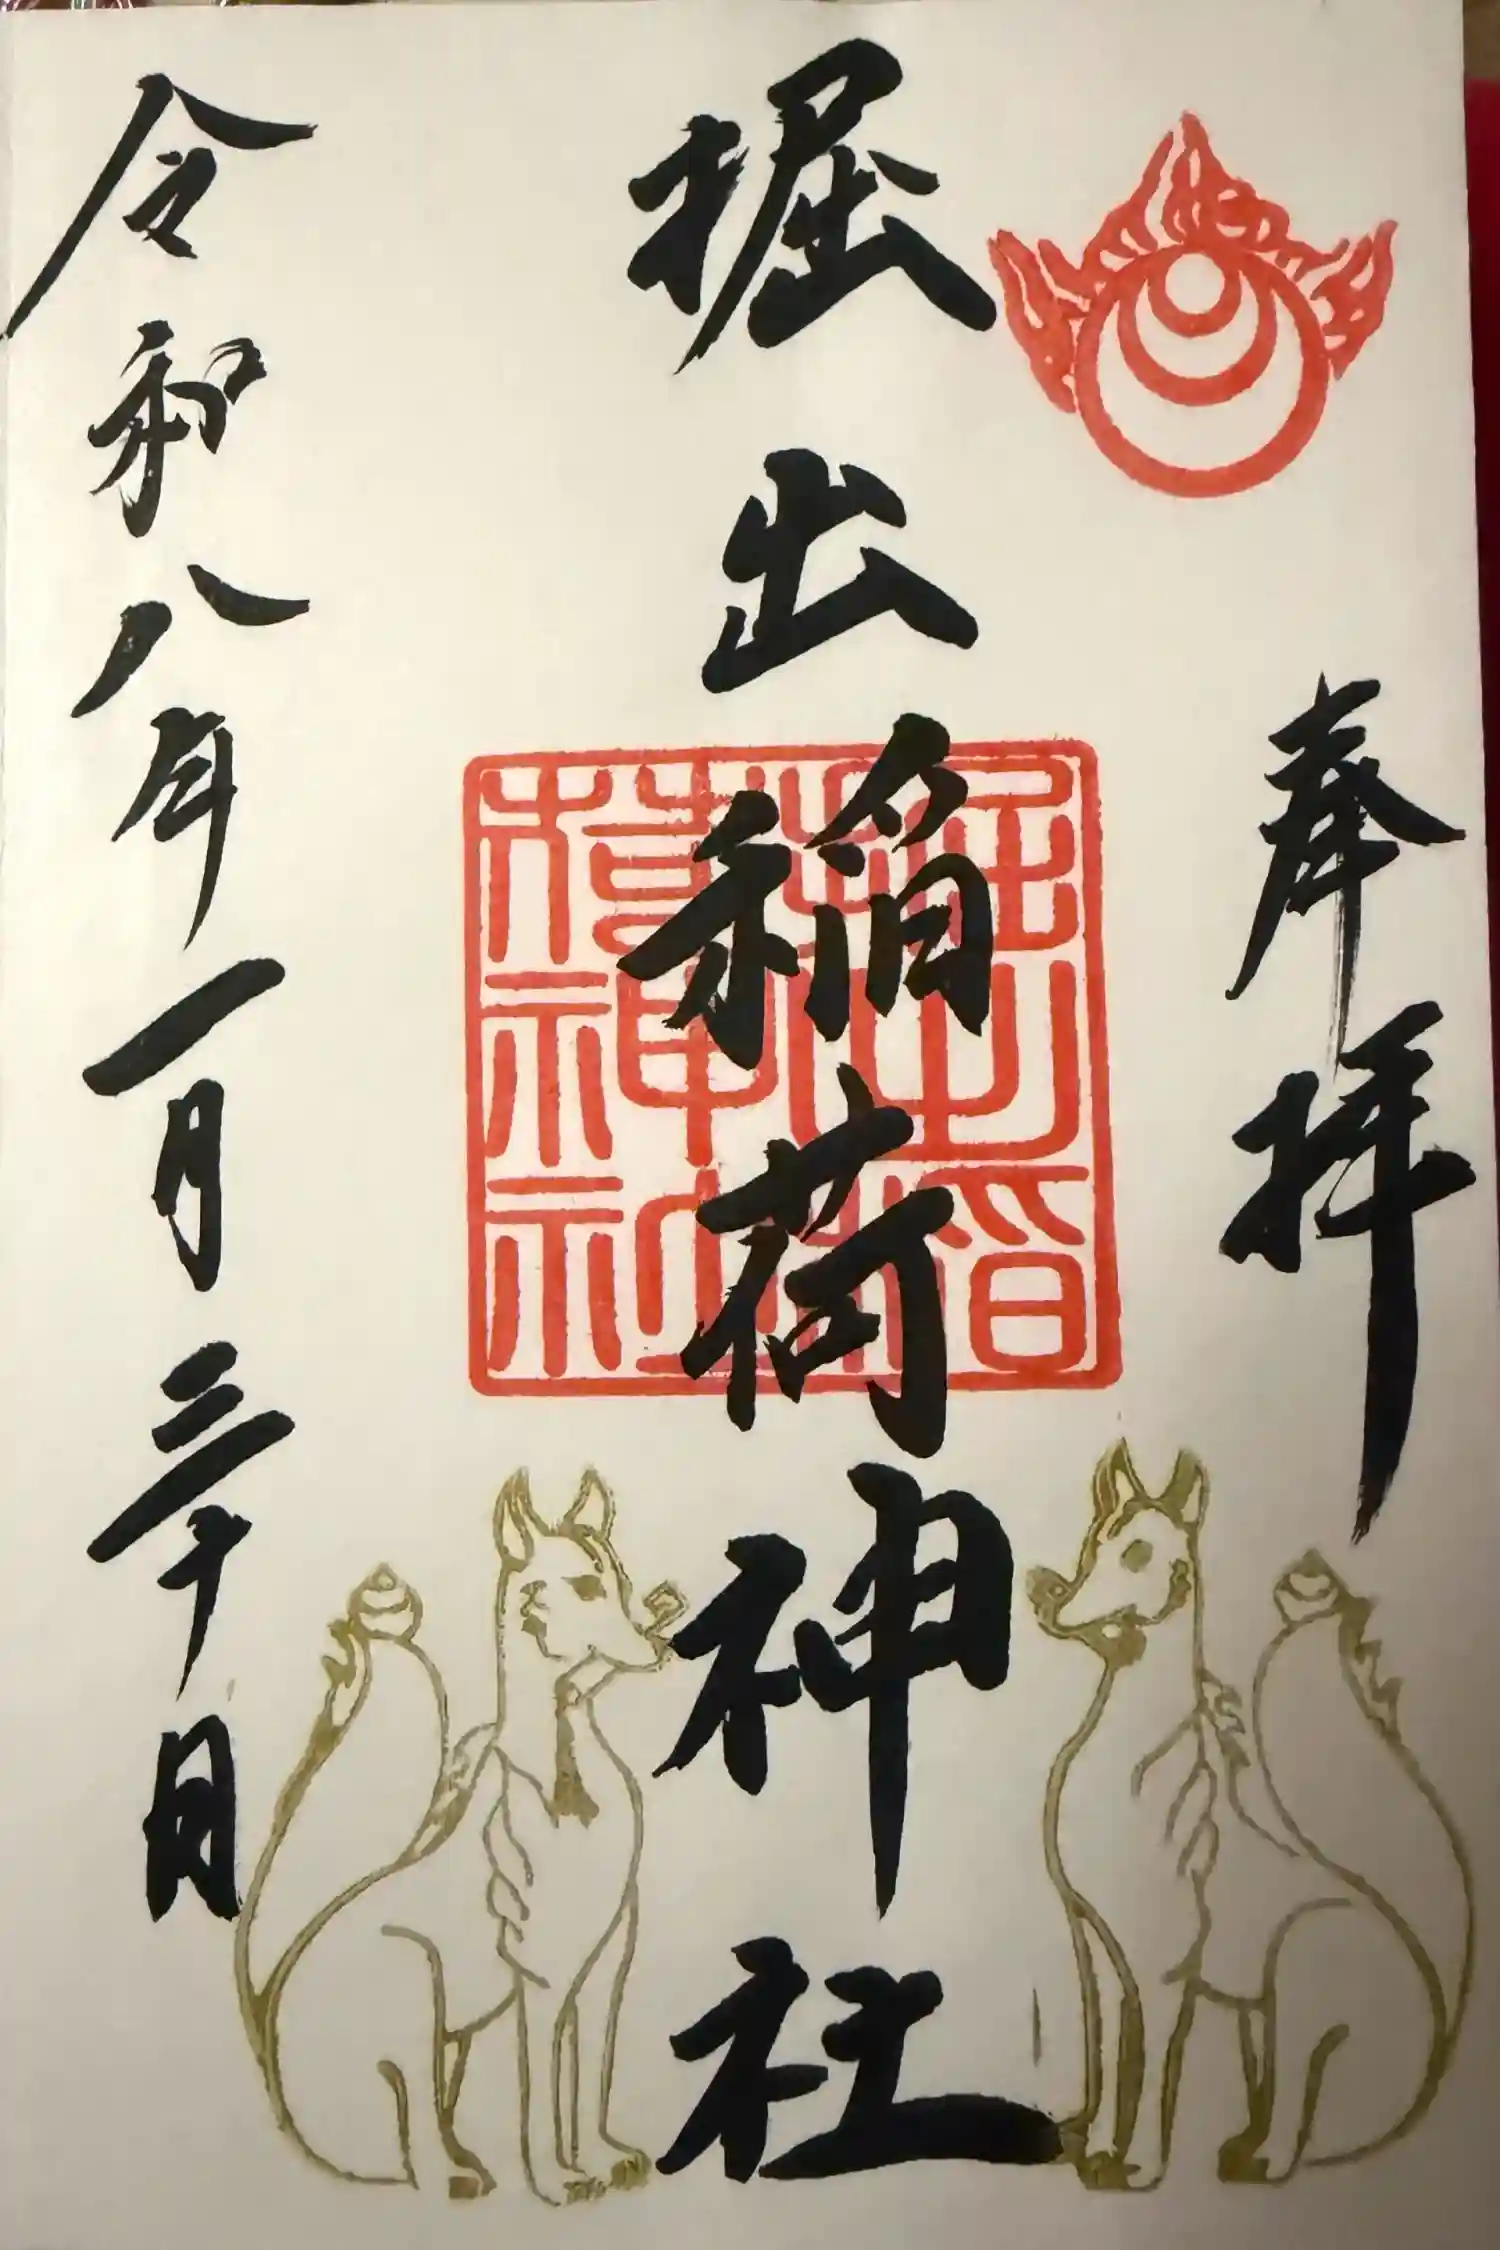 奉拝
堀出稲荷神社
堀出稲
荷神社
令和八年一月三十日